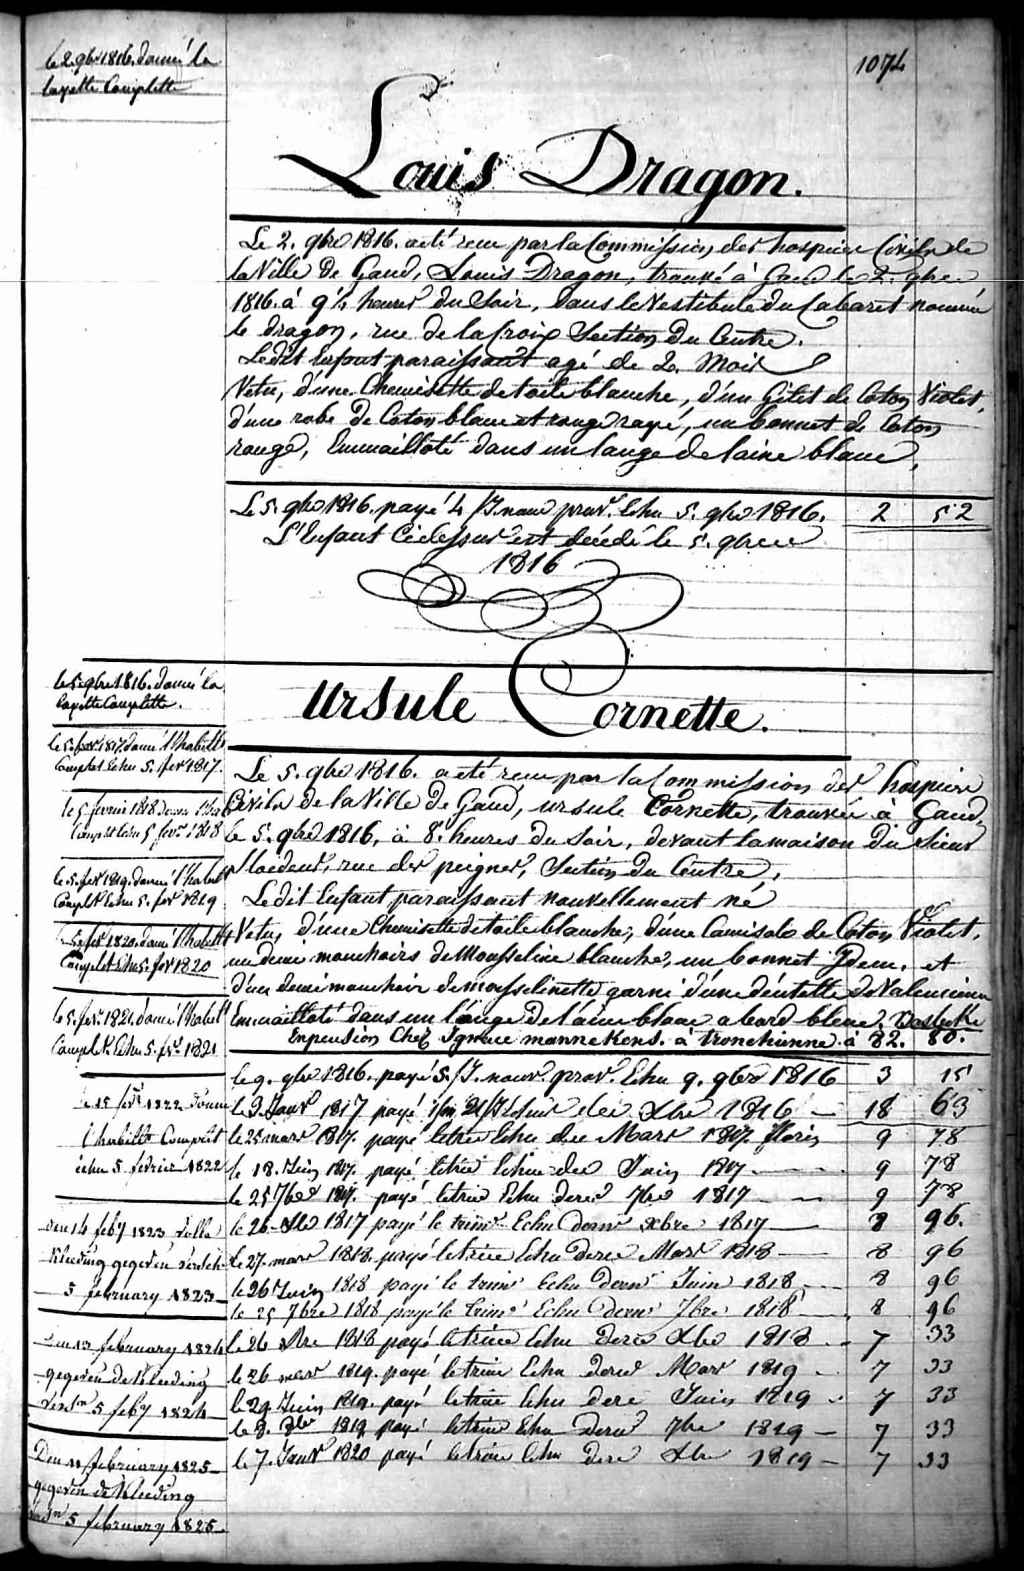 1074
le 2. 9bre 1816. donné la
layette Complette
Louis Dragon.
Le 2. 9bre 1816. a été recu par la Commission des hospices Civils de
la Ville De Gand, Louis Dragon, trouvé à Gand le 2. 9bre
1816. à 9 1/4 heures du Soir, Dans le Vestibule du Cabaret nommé
le dragon, rue de la Croix Section Du Centre.
Ledit Enfant paraissant agé de 2. Mois
Vetu, d'une Chemisette de toile blanche, d'un Gilet de Coton Violet,
d'une robe De Coton blanc et rouge rayé, un bonnet de Coton
rouge, Emmailloté dans un lange de laine blanc.
Le 5. 9bre 1816. payé 4 Echu 5. 9bre 1816. 2 52
L'Enfant Cidessus est décédé le 5. 9bre
1816
Ursule Cornette.
le 5. 9bre 1816. donné la
layette Complette.
le 5. fevr 1817. donné l'habillt
Complet Echu 5. fevr 1817.
le 5 fevrier 1818 donné l'habt
Complet Echu 5 fevr. 1818
le 5. fevr 1819. donné l'habillt
Complet Echu 5. fevr 1819
5 fevr 1820. donné l'habillt
Complet Echu 5. fevr 1820
le 5. fevr. 1821. donné l'habillt
Complet. Echu 5. fevr. 1821
le 15 fevr 1822 donné
l'habillt Complet
échu 5 fevrier 1822
den 14 feby 1823 volle
Kleeding gegeven
5 february 1823
Den 13 february 1824
gegeven de Kleeding
5 feby 1824
Den 11 february 1825
gegeven de Kleeding
5 february 1825.
Le 5. 9bre 1816. a été recu par la Commission des hospices
Civils de la Ville De Gand, Ursule Cornette, trouvée à Gand,
le 5. 9bre 1816, à 8. heures du Soir, devant la maison du Sieur
rue des peignes, Section Du Centre,
Ledit Enfant paraissant nouvellement né
Vetu, d'une Chemisette de toile blanche, d'une Camisole de Coton Violet,
un demi mouchoirs de Mousseline blanche, un bonnet Idem. et
d'un demi mouchoir de mousselinette garni d'une dentelle de Valencienne
Emmailloté dans un lange de laine blanc a bord bleue.
Enpension Chez Ignace mannekens. à tronchienne à 82. 80.
le 9. 9bre 1816. payé 5. Echu 9. 9bre 1816 3 15
le 3 Janvr 1817 payé 1816 18 63
le 25 mars 1817. payé letrim Echu der Mars 1817. florins 9 78
le 18. Juin 1817. payé letrim Echu der Juin 1817 9 78
le 25 7bre 1817. payé letrim Echu dernr 7bre 1817 9 78
le 26 Xbre 1817 payé le trimr Echu dernr Xbre 1817 8 96.
le 27. mars 1818. payé letrim Echu derr Mars 1818 8 96
le 26 Juin 1818 payé le trimr Echu dernr Juin 1818 8 96
le 25 7bre 1818 payé le trimr Echu dernr 7bre 1818 8 96
le 26 Xbre 1818 payé letrim Echu derr Xbre 1818 7 33
le 26 mars 1819. payé letrim Echu derr Mars 1819 7 33
le 29 Juin 1819. payé letrim Echu derr Juin 1819 7 33
le 8. 8bre 1819 payé letrim Echu derr 7bre 1819 7 33
le 7. Janvr 1820 payé letrim Echu derr Xbre 1819 7 33